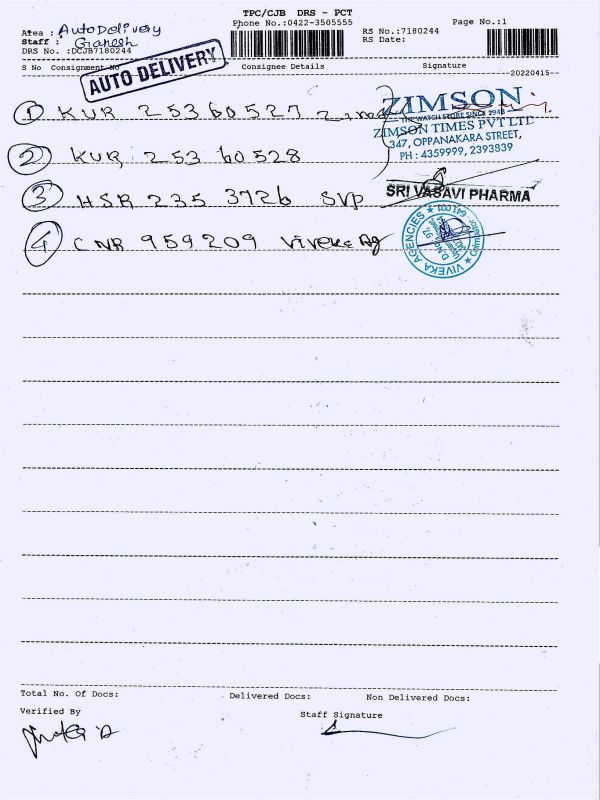 TPC/CJB DRS - PCT
Phone No.:0422-3505555
Page No.:1
Area : AutoDelivery
RS No.:7180244
Staff : Ganesh
RS Date:
DRS No. :DCJB7180244
S No Consignment No Consignee Details Signature
AUTO DELIVERY
--20220415--
1 KUR 253 60527
ZIMSON
THE WATCH STORE SINCE 1948
ZIMSON TIMES PVT LTD
347, OPPANAKARA STREET,
PH : 4359999, 2393839
2 KUR 253 60528
3 HSR 235 3726 SVP
SRI VASAVI PHARMA
4 CNR 959209 Viveka Ag
VIVEKA AGENCIES
Total No. Of Docs: Delivered Docs: Non Delivered Docs:
Verified By
Staff Signature